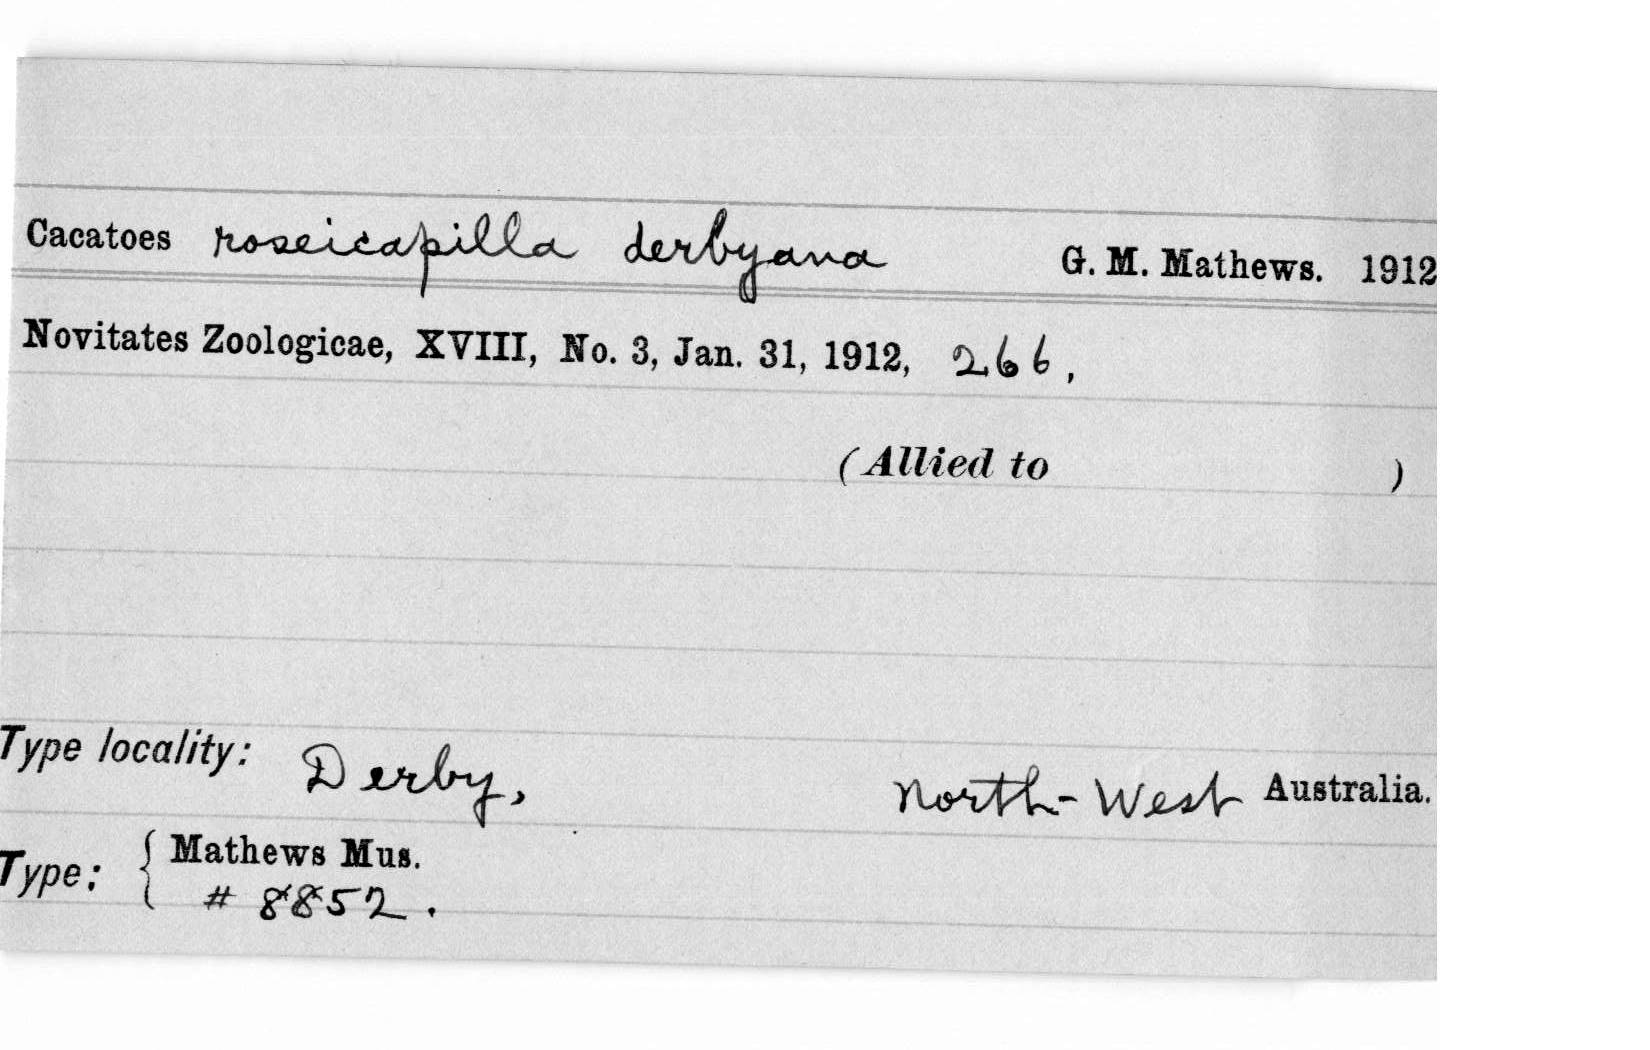 Cacatoes roseicapilla derbyana G. M. Mathews. 1912
Novitates Zoologicae, XVIII, No. 3, Jan. 31, 1912, 266,
(Allied to )
Type locality: Derby, North-West Australia.
Type: { Mathews Mus.
# 8852.